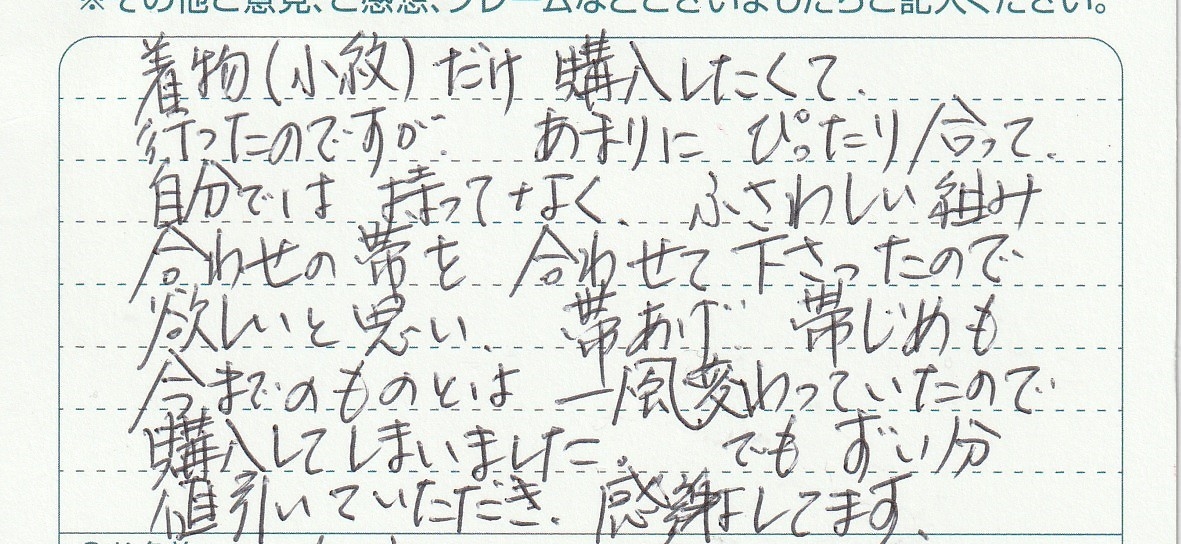 ※その他ご意見、ご感想、クレームなどございましたらご記入ください。
着物(小紋)だけ 購入したくて、
行ったのですが、 あまりに ぴったり合って、
自分では 持ってなく、ふさわしい組み
合わせの帯を 合わせて下さったので
欲しいと思い、 帯あげ 帯じめも
今までのものとは 一風変わっていたので
購入してしまいました。 でも ずい分
値引いていただき、感謝してます。